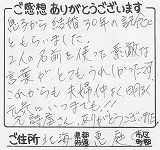 ご感想 ありがとうございます
息子から結婚30年の記念に
ともらいました。
2人の名前を使った素敵な
言葉がとてもうれしかったです
これからも夫婦仲よく明るく
元気にいつまでも!!
ありがとうございました
ご住所 北海 都道府県 恵庭 市区町村